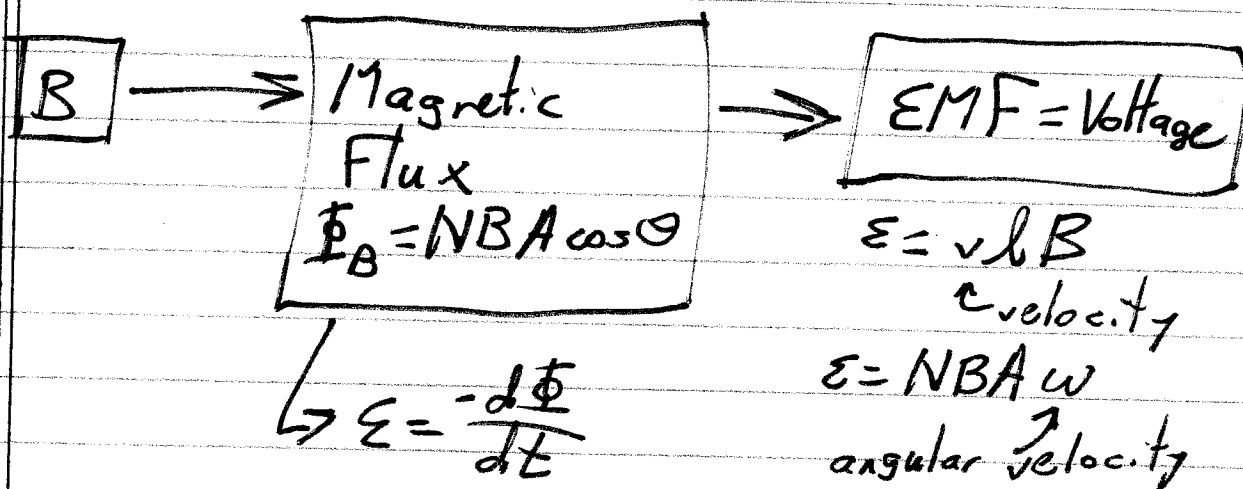 B
Magnetic
Flux
Φ_B = NBA cosΘ
ε = -dΦ/dt
EMF = Voltage
ε = vlB
velocity
ε = NBA ω
angular velocity